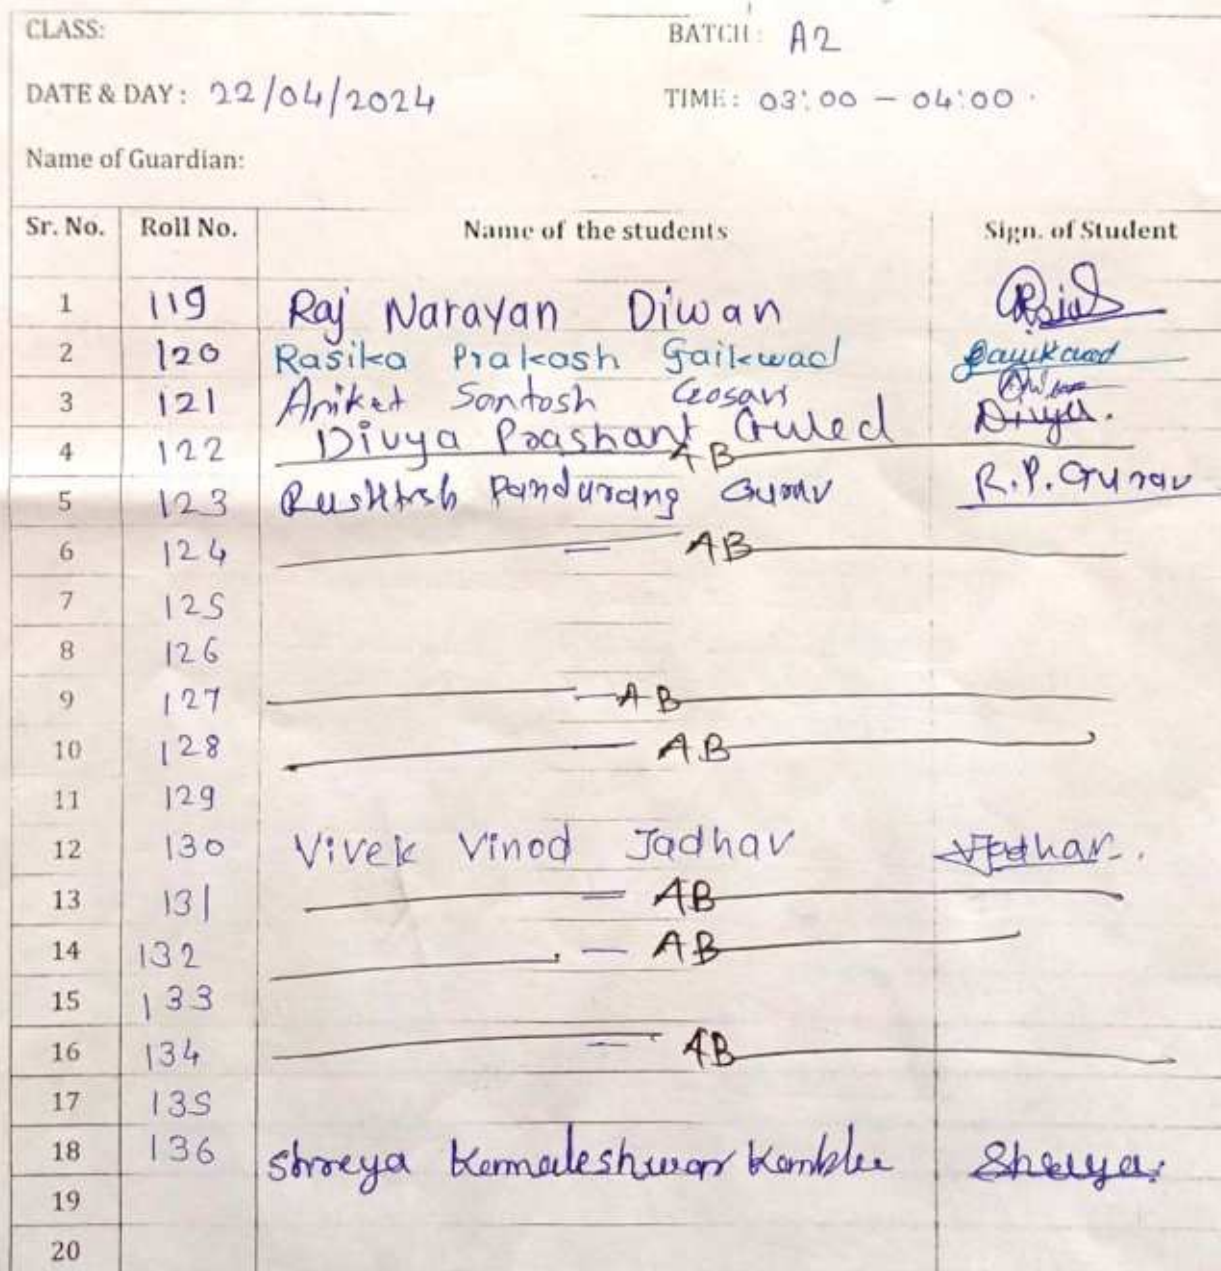 CLASS: BATCH: A2
DATE & DAY: 22/04/2024 TIME: 03:00 - 04:00
Name of Guardian:
Sr. No. Roll No. Name of the students Sign. of Student
1 119 Raj Narayan Diwan
2 120 Rasika Prakash Gaikwad Gaikwad
3 121 Aniket Santosh Gosavi
4 122 Divya Prashant Guled AB Divya.
5 123 Pandurang Gurav R.P. Gurav
6 124 — AB
7 125
8 126
9 127 — AB
10 128 — AB
11 129
12 130 Vivek Vinod Jadhav VJadhav.
13 131 — AB
14 132 — AB
15 133
16 134 — AB
17 135
18 136 Shreya Kamaleshwar Kamble Shreya.
19
20